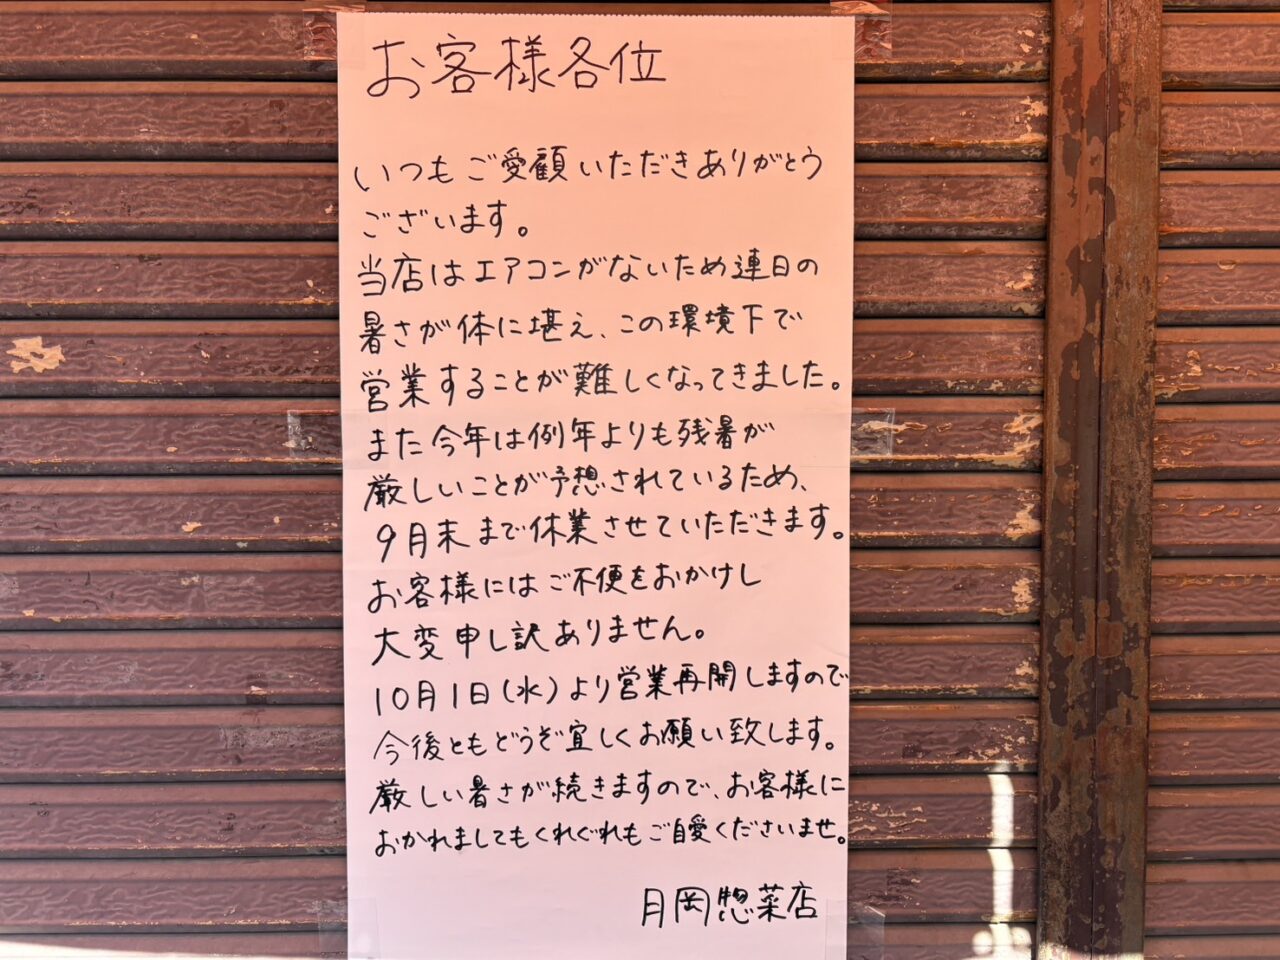 お客様各位
いつもご愛顧いただきありがとう
ございます。
当店はエアコンがないため連日の
暑さが体に堪え、この環境下で
営業することが難しくなってきました。
また今年は例年よりも残暑が
厳しいことが予想されているため、
9月末まで休業させていただきます。
お客様にはご不便をおかけし
大変申し訳ありません。
10月1日(水)より営業再開しますので
今後ともどうぞ宜しくお願い致します。
厳しい暑さが続きますので、お客様に
おかれましてもくれぐれもご自愛くださいませ。
月岡惣菜店